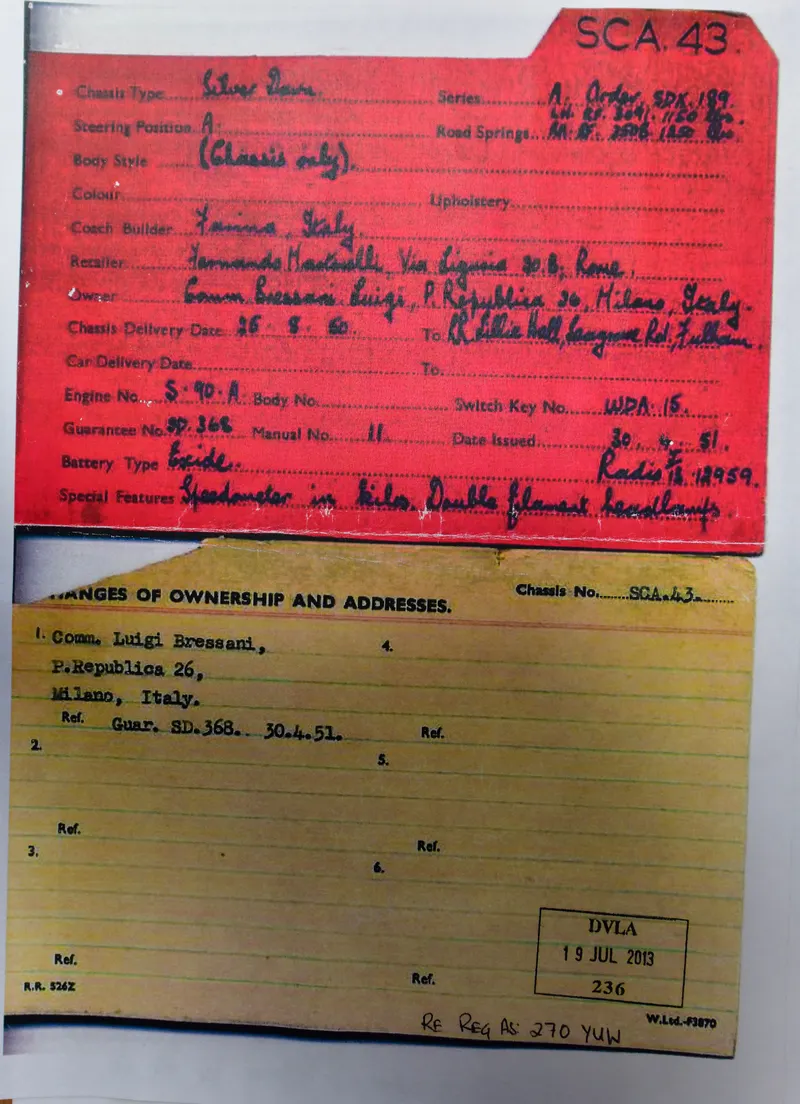 SCA. 43.
Chassis Type Silver Dawn. Series A. Order. SDK. 199.
Steering Position A. Road Springs 1150 1250
Body Style (Chassis only).
Colour Upholstery
Coach Builder Farina, Italy.
Retailer Fernando Via Liguria 30.B, Rome.
Owner Comm Bressani Luigi, P. Republica 26, Milano, Italy.
Chassis Delivery Date 26 . 8 . 50. To RR Lillie Hall, Seagrave Rd, Fulham.
Car Delivery Date To
Engine No. S. 90. A. Body No. Switch Key No. WDA. 15.
Guarantee No. SD. 368 Manual No. 11 Date Issued 30. 4. 51.
Battery Type Exide. Radio 12959.
Special Features Speedometer in kilos. Double filament headlamps.
ANGES OF OWNERSHIP AND ADDRESSES. Chassis No. SCA.43.
1. Comm. Luigi Bressani, 4.
P.Republica 26,
Milano, Italy.
Ref. Guar. SD.368. 30.4.51. Ref.
2. 5.
Ref. Ref.
3. 6.
Ref. Ref.
DVLA
19 JUL 2013
236
R.R. 526Z W.Ltd.-F3870
RE REG AS: 270 YUW